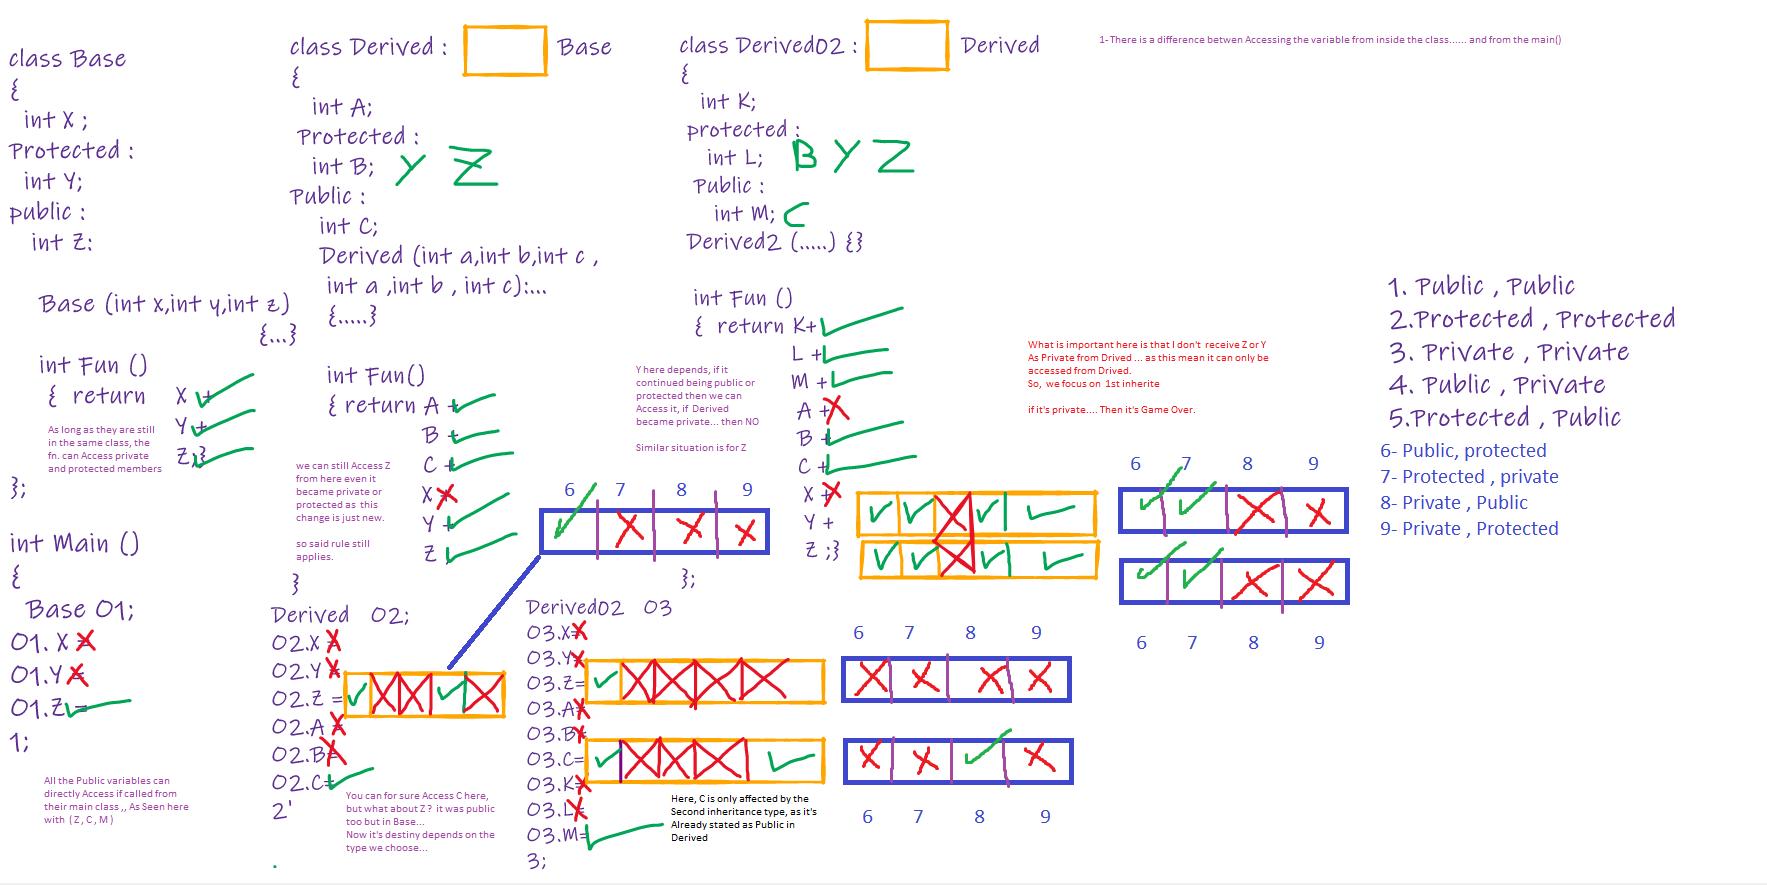 class Base
{
int X ;
Protected :
int Y;
public :
int Z:
Base (int x,int y,int z)
{...}
int Fun ()
{ return X +
Y +
Z;}
As long as they are still
in the same class, the
fn. can Access private
and protected members
};
int Main ()
{
Base O1;
O1. X =
O1.Y =
O1.Z =
1;
All the Public variables can
directly Access if called from
their main class ,, As Seen here
with ( Z , C , M )
class Derived : Base
{
int A;
Protected :
int B; Y Z
Public :
int C;
Derived (int a,int b,int c ,
int a ,int b , int c):...
{.....}
int Fun()
{ return A +
B +
C +
X +
Y +
Z ;
we can still Access Z
from here even it
became private or
protected as this
change is just new.
so said rule still
applies.
}
Derived O2;
O2.X =
O2.Y =
O2.Z =
O2.A =
O2.B=
O2.C=
2'
You can for sure Access C here,
but what about Z ? it was public
too but in Base...
Now it's destiny depends on the
type we choose...
.
6 7 8 9
class Derived02 : Derived
{
int K;
protected :
int L; B Y Z
Public :
int M; C
Derived2 (.....) {}
int Fun ()
{ return K+
L +
M +
A +
B +
C +
X +
Y +
Z ;}
Y here depends, if it
continued being public or
protected then we can
Access it, if Derived
became private... then NO
Similar situation is for Z
};
Derived02 O3
O3.X=
O3.Y=
O3.Z=
O3.A=
O3.B=
O3.C=
O3.K=
O3.L=
O3.M=
3;
Here, C is only affected by the
Second inheritance type, as it's
Already stated as Public in
Derived
6 7 8 9
6 7 8 9
1- There is a difference betwen Accessing the variable from inside the class...... and from the main()
What is important here is that I don't receive Z or Y
As Private from Drived ... as this mean it can only be
accessed from Drived.
So, we focus on 1st inherite
if it's private.... Then it's Game Over.
6 7 8 9
6 7 8 9
1. Public , Public
2.Protected , Protected
3. Private , Private
4. Public , Private
5.Protected , Public
6- Public, protected
7- Protected , private
8- Private , Public
9- Private , Protected